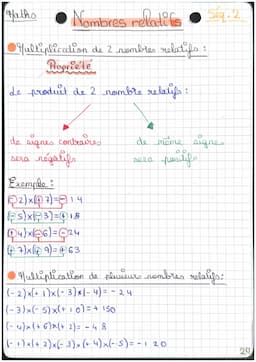 Maths
Nombres relatifs
Séq. 2
Multiplication de 2 nombres relatifs :
Propriété
Le produit de 2 nombre relatifs :
de signes contraires
sera négatifs
de même signe
sera positifs
Exemple :
(-2)x(+7)=-14
(-5)x(-3)=+15
(+4)x(-6)=-24
(+7)x(+9)=+63
Multiplication de plusieur nombres relatifs:
(-2)x(+1)x(-3)x(-4)=-24
(-3)x(-5)x(+10)=+150
(-4)x(+6)x(+2)=-48
(-1)x(+2)x(-3)x(+4)x(-5)=-120